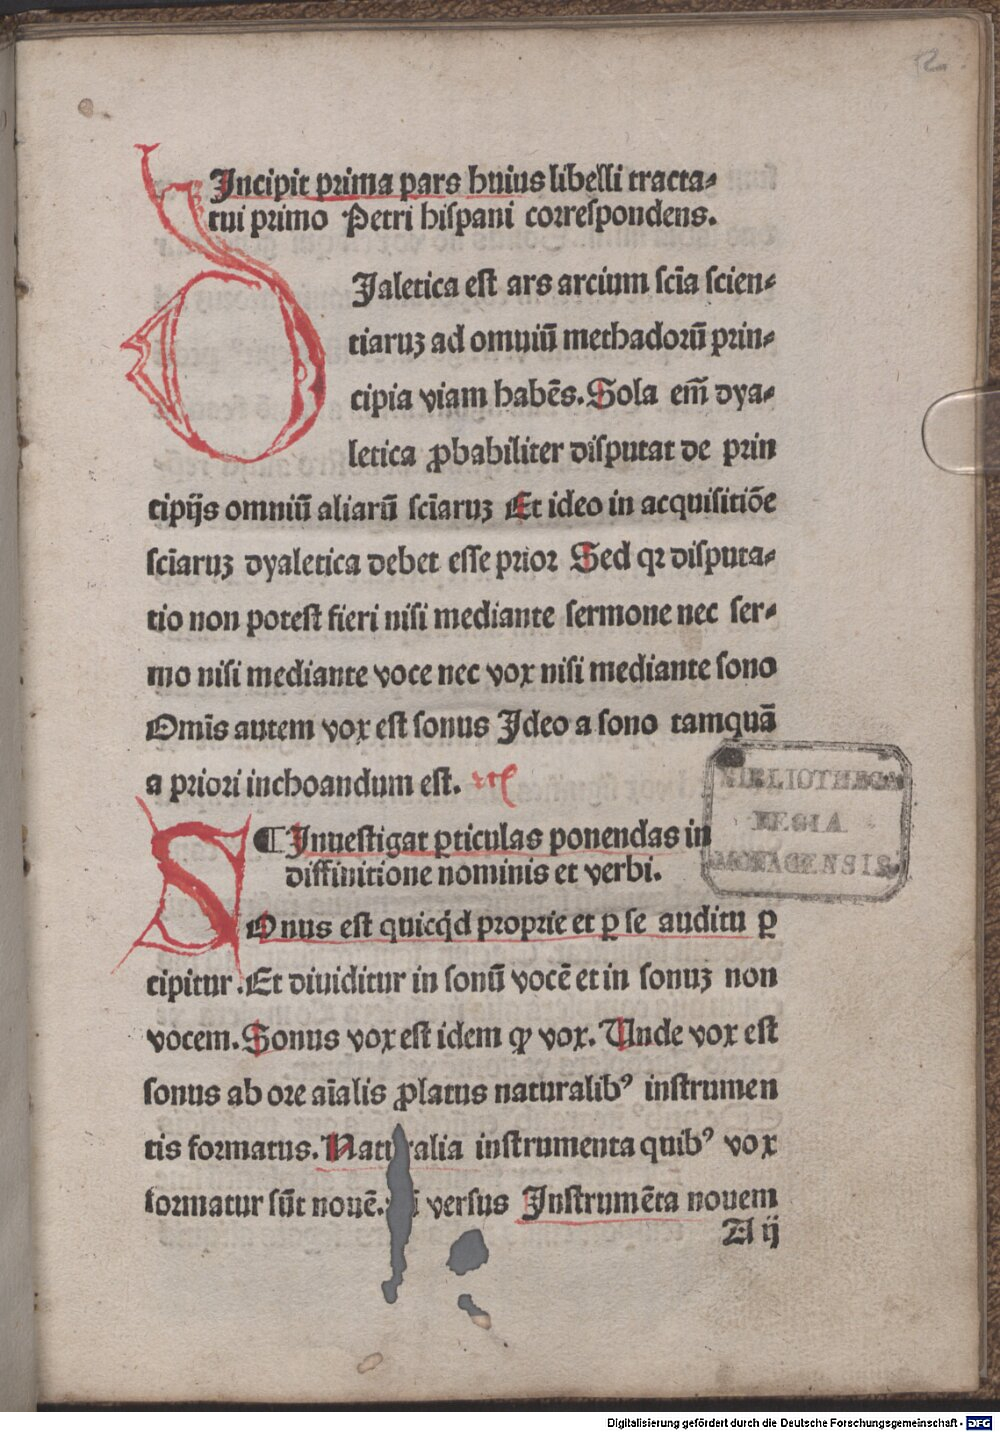 2
Incipit prima pars huius libelli tracta⸗
tui primo Petri hispani correspondens.
DIaletica est ars arcium scīa scien⸗
tiaruꝫ ad omniū methadorū prin⸗
cipia viam habēs. Sola em̄ dya⸗
letica ꝓbabiliter disputat de prin
cipijs omniū aliarū scīaruꝫ Et ideo in acquisitiōe
scīaruꝫ dyaletica debet esse prior Sed qꝛ disputa⸗
tio non potest fieri nisi mediante sermone nec ser⸗
mo nisi mediante voce nec vox nisi mediante sono
Omīs autem vox est sonus Ideo a sono tamquā
a priori inchoandum est.
¶ Inuestigat ꝑticulas ponendas in
diffinitione nominis et verbi.
SOnus est quicq̇d proprie et ꝑ se auditu ꝑ
cipitur. Et diuiditur in sonū vocē et in sonuꝫ non
vocem. Sonus vox est idem ꝙ vox. Unde vox est
sonus ab ore aīalis ꝓlatus naturalibꝰ instrumen
tis formatus. Naturalia instrumenta quibꝰ vox
formatur sūt nouē. versus Instrumēta nouem
A ij
BIBLIOTHECA
REGIA
MONACENSIS
Digitalisierung gefördert durch die Deutsche Forschungsgemeinschaft - DFG